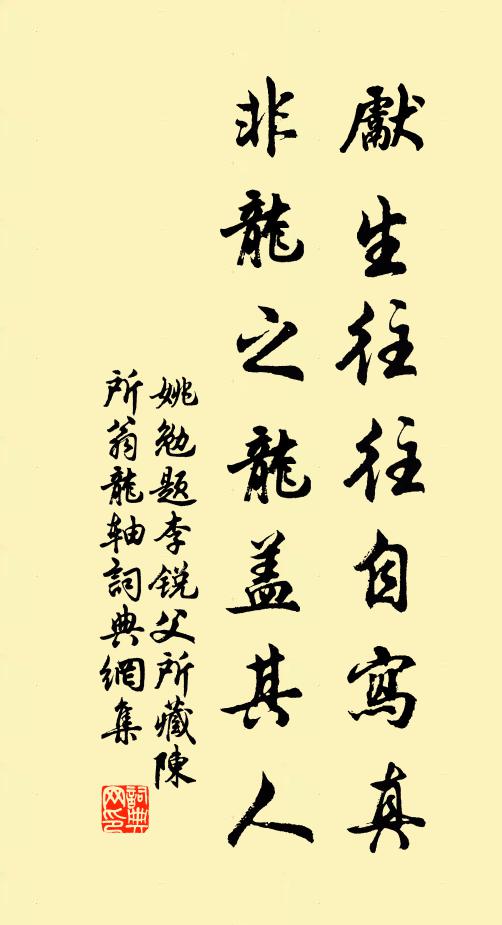 獻生往往自寫真
非龍之龍蓋其人
姚勉題李銳父所藏陳
所翁龍軸詞典網集
詞典網印